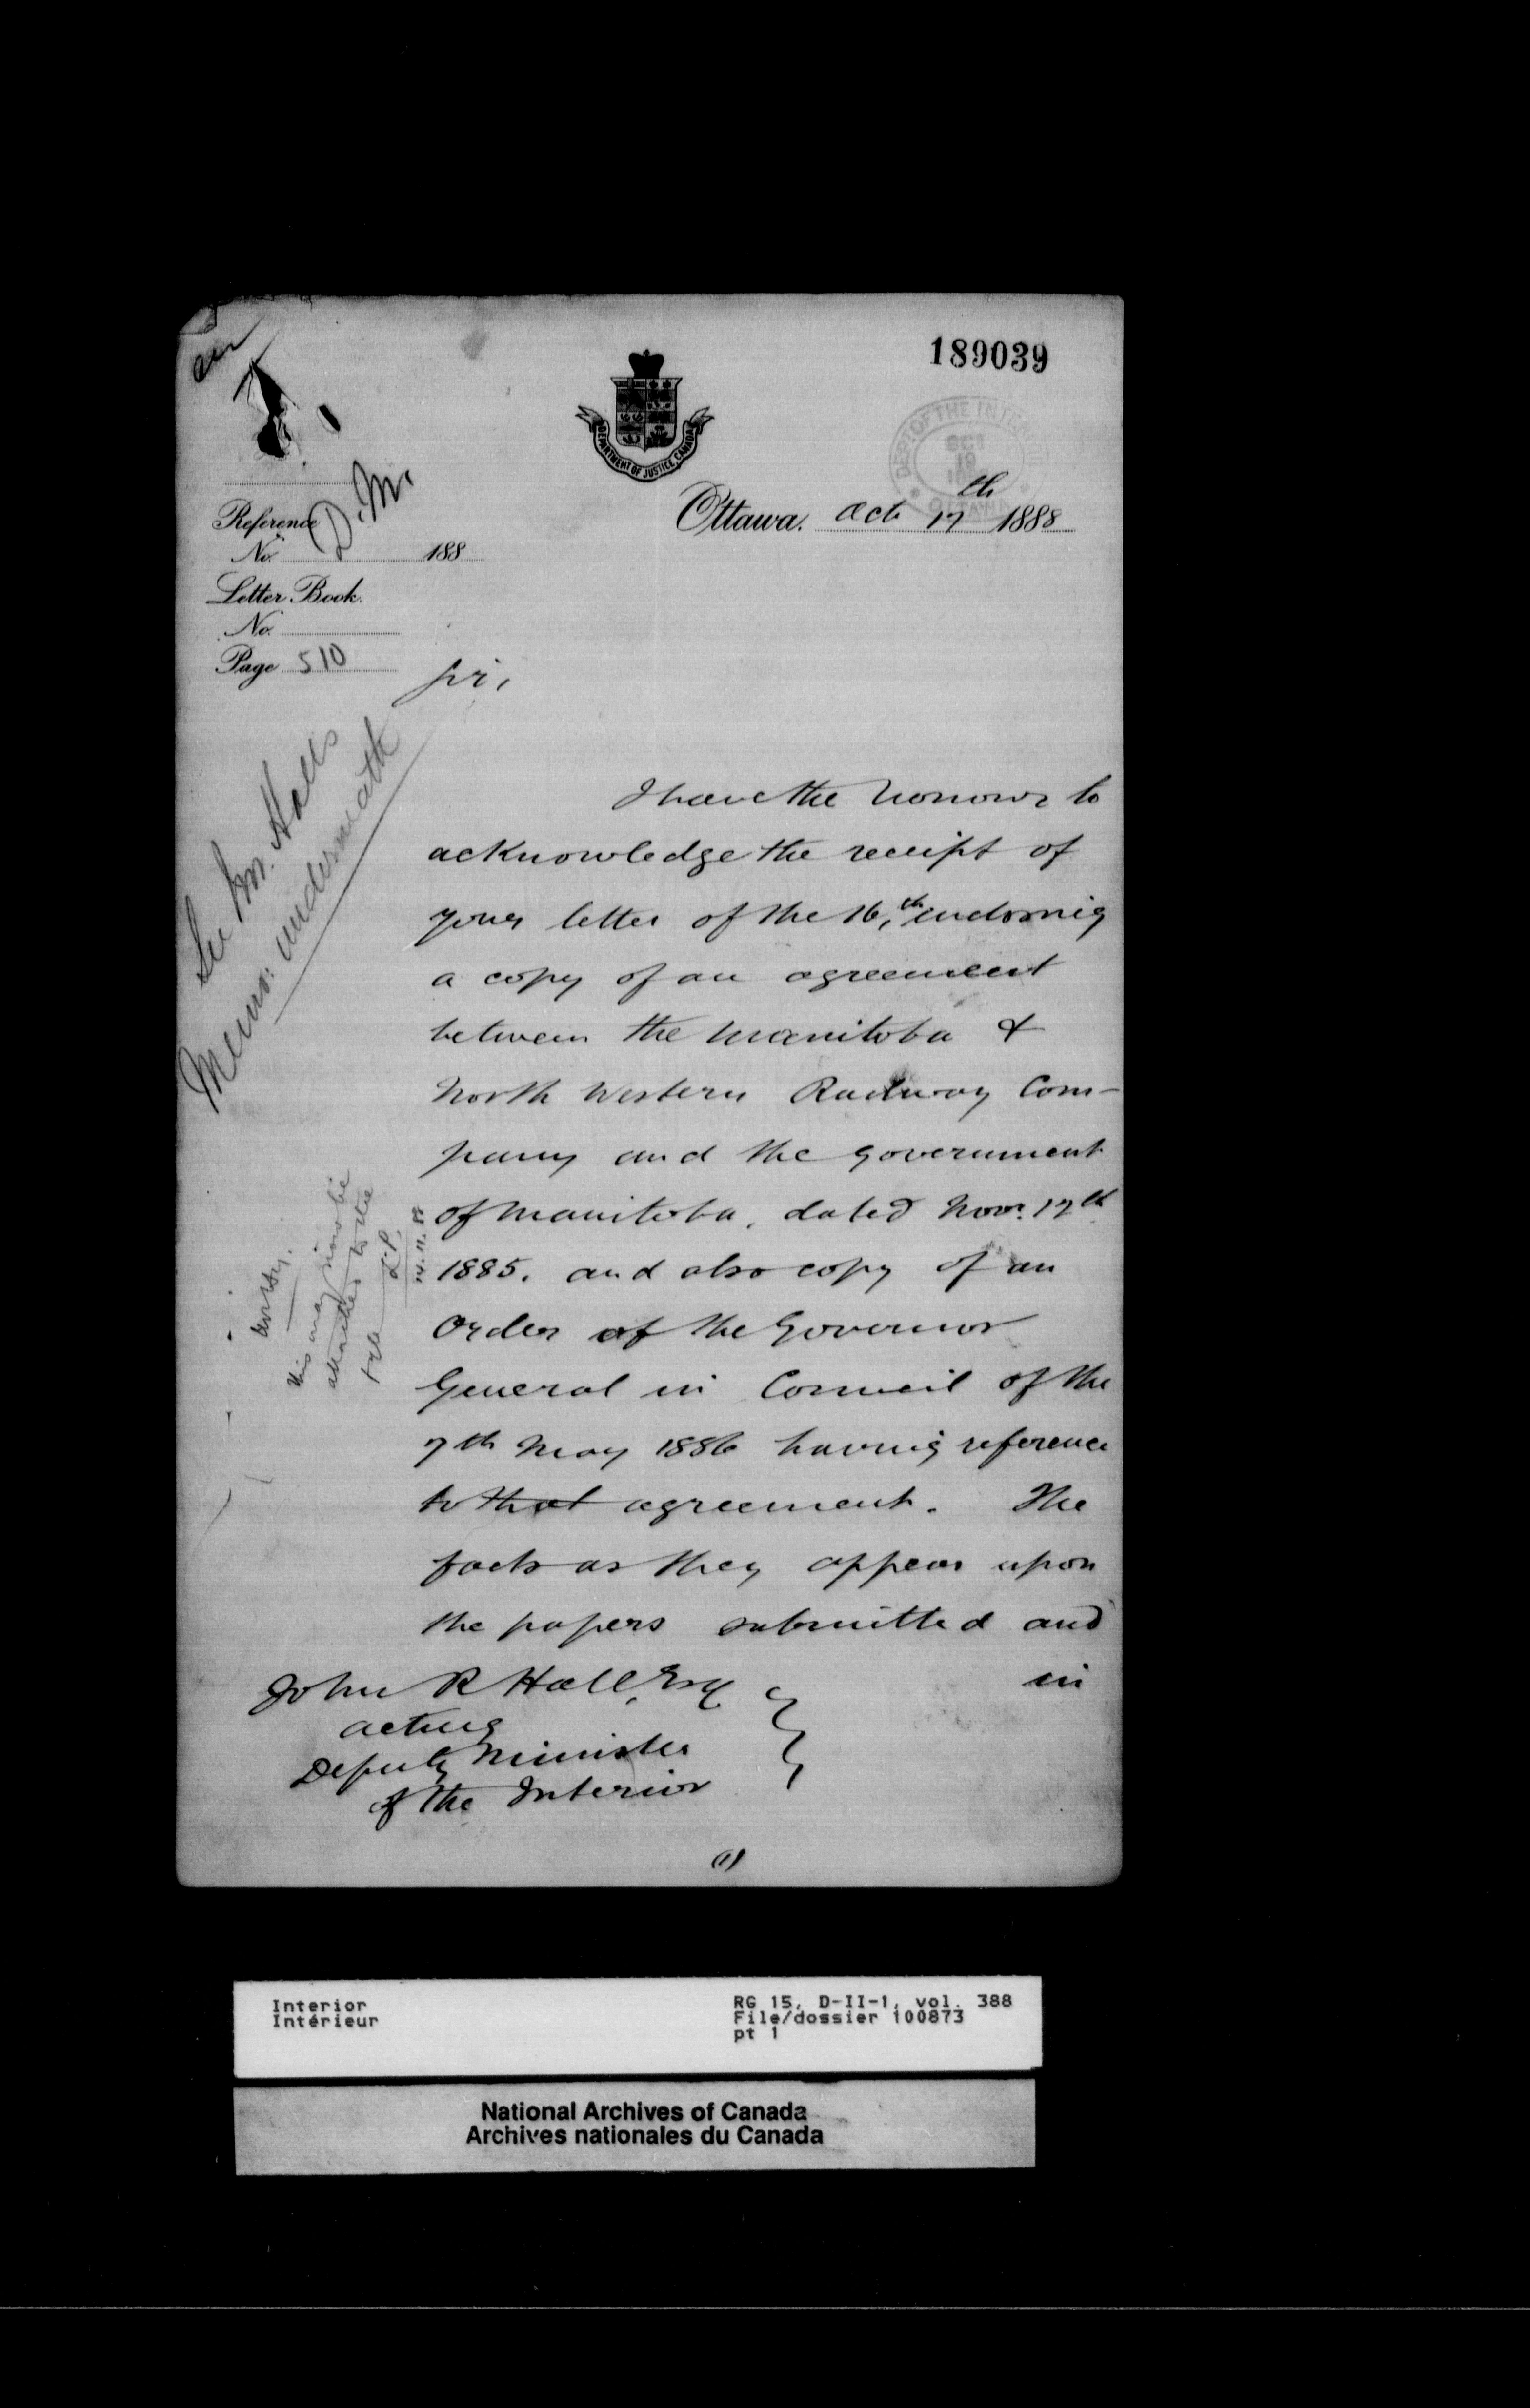 189039
DEPARTMENT OF JUSTICE, CANADA
DEPT OF THE INTERIOR
OCT
19
OTTAWA
D.M.
Reference
No. 188
Letter Book.
No.
Page 510
Ottawa. Oct 17th 1888
Sir,
See Mr. Hall's
Memo: underneath
I have the honour to
acknowledge the receipt of
your letter of the 16th, enclosing
a copy of an agreement
between the Manitoba &
North Western Railway Com-
pany and the Government
of Manitoba, dated Nov. 17th
1885. and also copy of an
Order of the Governor
General in Council of the
7th May 1886 having reference
to that agreement. The
facts as they appear upon
the papers submitted and
in
This may now be
attached to the
file
14.11.88
John R Hall, Esq
Acting
Deputy Minister
of the Interior
(1)
Interior
Intérieur
RG 15, D-II-1, vol. 388
File/dossier 100873
pt 1
National Archives of Canada
Archives nationales du Canada